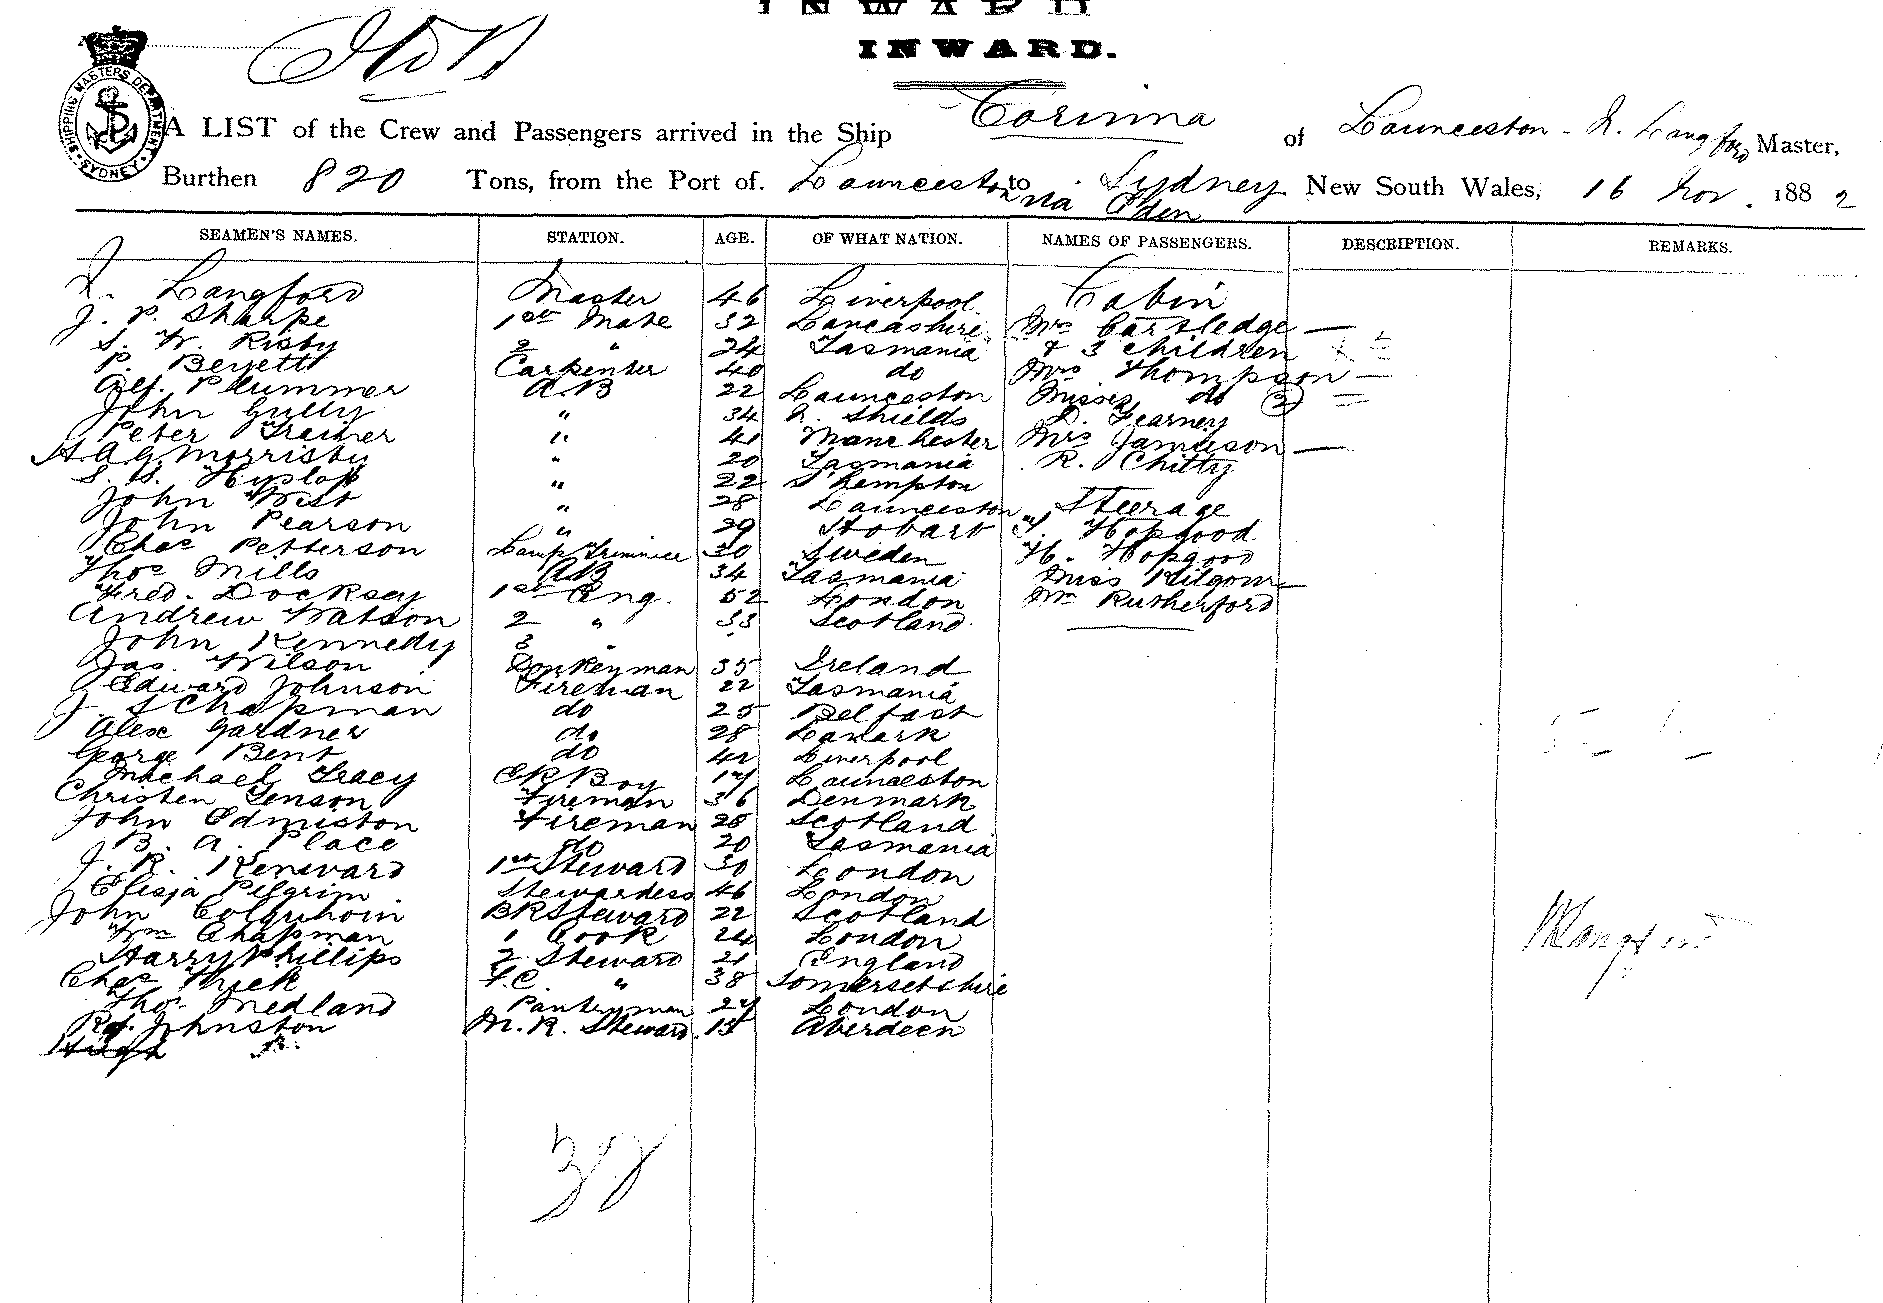 INWARD
INWARD.
SHIPPING MASTERS DEPARTMENT SYDNEY
A LIST of the Crew and Passengers arrived in the Ship Corinna of Launceston - Langford Master,
Burthen 820 Tons, from the Port of. Launceston to Sydney New South Wales, 16 Nov. 1882
via Eden
SEAMEN'S NAMES. STATION. AGE. OF WHAT NATION. NAMES OF PASSENGERS. DESCRIPTION. REMARKS.
Langford Master 46 Liverpool Cabin
J. P. Sharpe 1st Mate 32 Lancashire Mrs Cartledge —
S. W. Risby 2 " 24 Tasmania & 3 children
P. Bennett Carpenter 40 do Mrs Thompson —
Alf. Plummer A.B 22 Launceston Misses do (2) =
John Gully " 34 N. Shields D. Fearney
Peter Greiner " 41 Manchester Mrs Jamieson —
H.A.G. Morrisby " 20 Tasmania R. Chitty
S. H. Hyslop " 22 S'hampton
John West " 28 Launceston Steerage
John Pearson " 29 Hobart T. Hopgood
Chas Petterson Lamp Trimmer 30 Sweden H. Hopgood
Thos Mills A.B 34 Tasmania Miss Kilgour —
Fred. Docksey 1st Eng. 52 London Mr Rutherford
Andrew Watson 2 " 33 Scotland
John Kennedy 3 "
Jas. Wilson Donkeyman 35 Ireland
Edward Johnson Fireman 22 Tasmania
J. S Chapman do 25 Belfast
Alex Gardner do 28 Lanark
George Bent do 42 Liverpool
Michael Tracy E R Boy 17 Launceston
Christen Jenson Fireman 36 Denmark
John Edmiston Fireman 28 Scotland
B. A. Place do 20 Tasmania
J. R. Kenward 1st Steward 30 London
Elisja Pilgrim Stewardess 46 London
John Colquhoin BK Steward 22 Scotland
Wm Chapman 1 Cook 24 London
Harry Phillips 2 Steward 21 England
Chas Thick F.C. " 38 Somersetshire
Thos Medland Pantryman 27 London
Rt. Johnston M. R. Steward 15 Aberdeen
Hugh
38